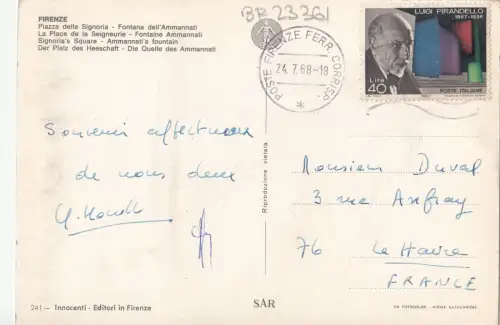 FIRENZE
Piazza della Signoria - Fontana dell'Ammannati
La Place de la Seigneurie - Fontaine Ammannati
Signoria's Square - Ammannati's fountain
Der Platz des Heeschaft - Die Quelle des Ammannati
BR 23361
POSTE FIRENZE FERR. CORRISP.
24.7.68-18
LUIGI PIRANDELLO
1867-1936
Lire
40
POSTE ITALIANE
Souvenir affectueux
de nous deux
Riproduzione vietata
Monsieur Duval
3 rue Anfray
76 Le Havre
FRANCE
241 - Innocenti - Editori in Firenze
SAR